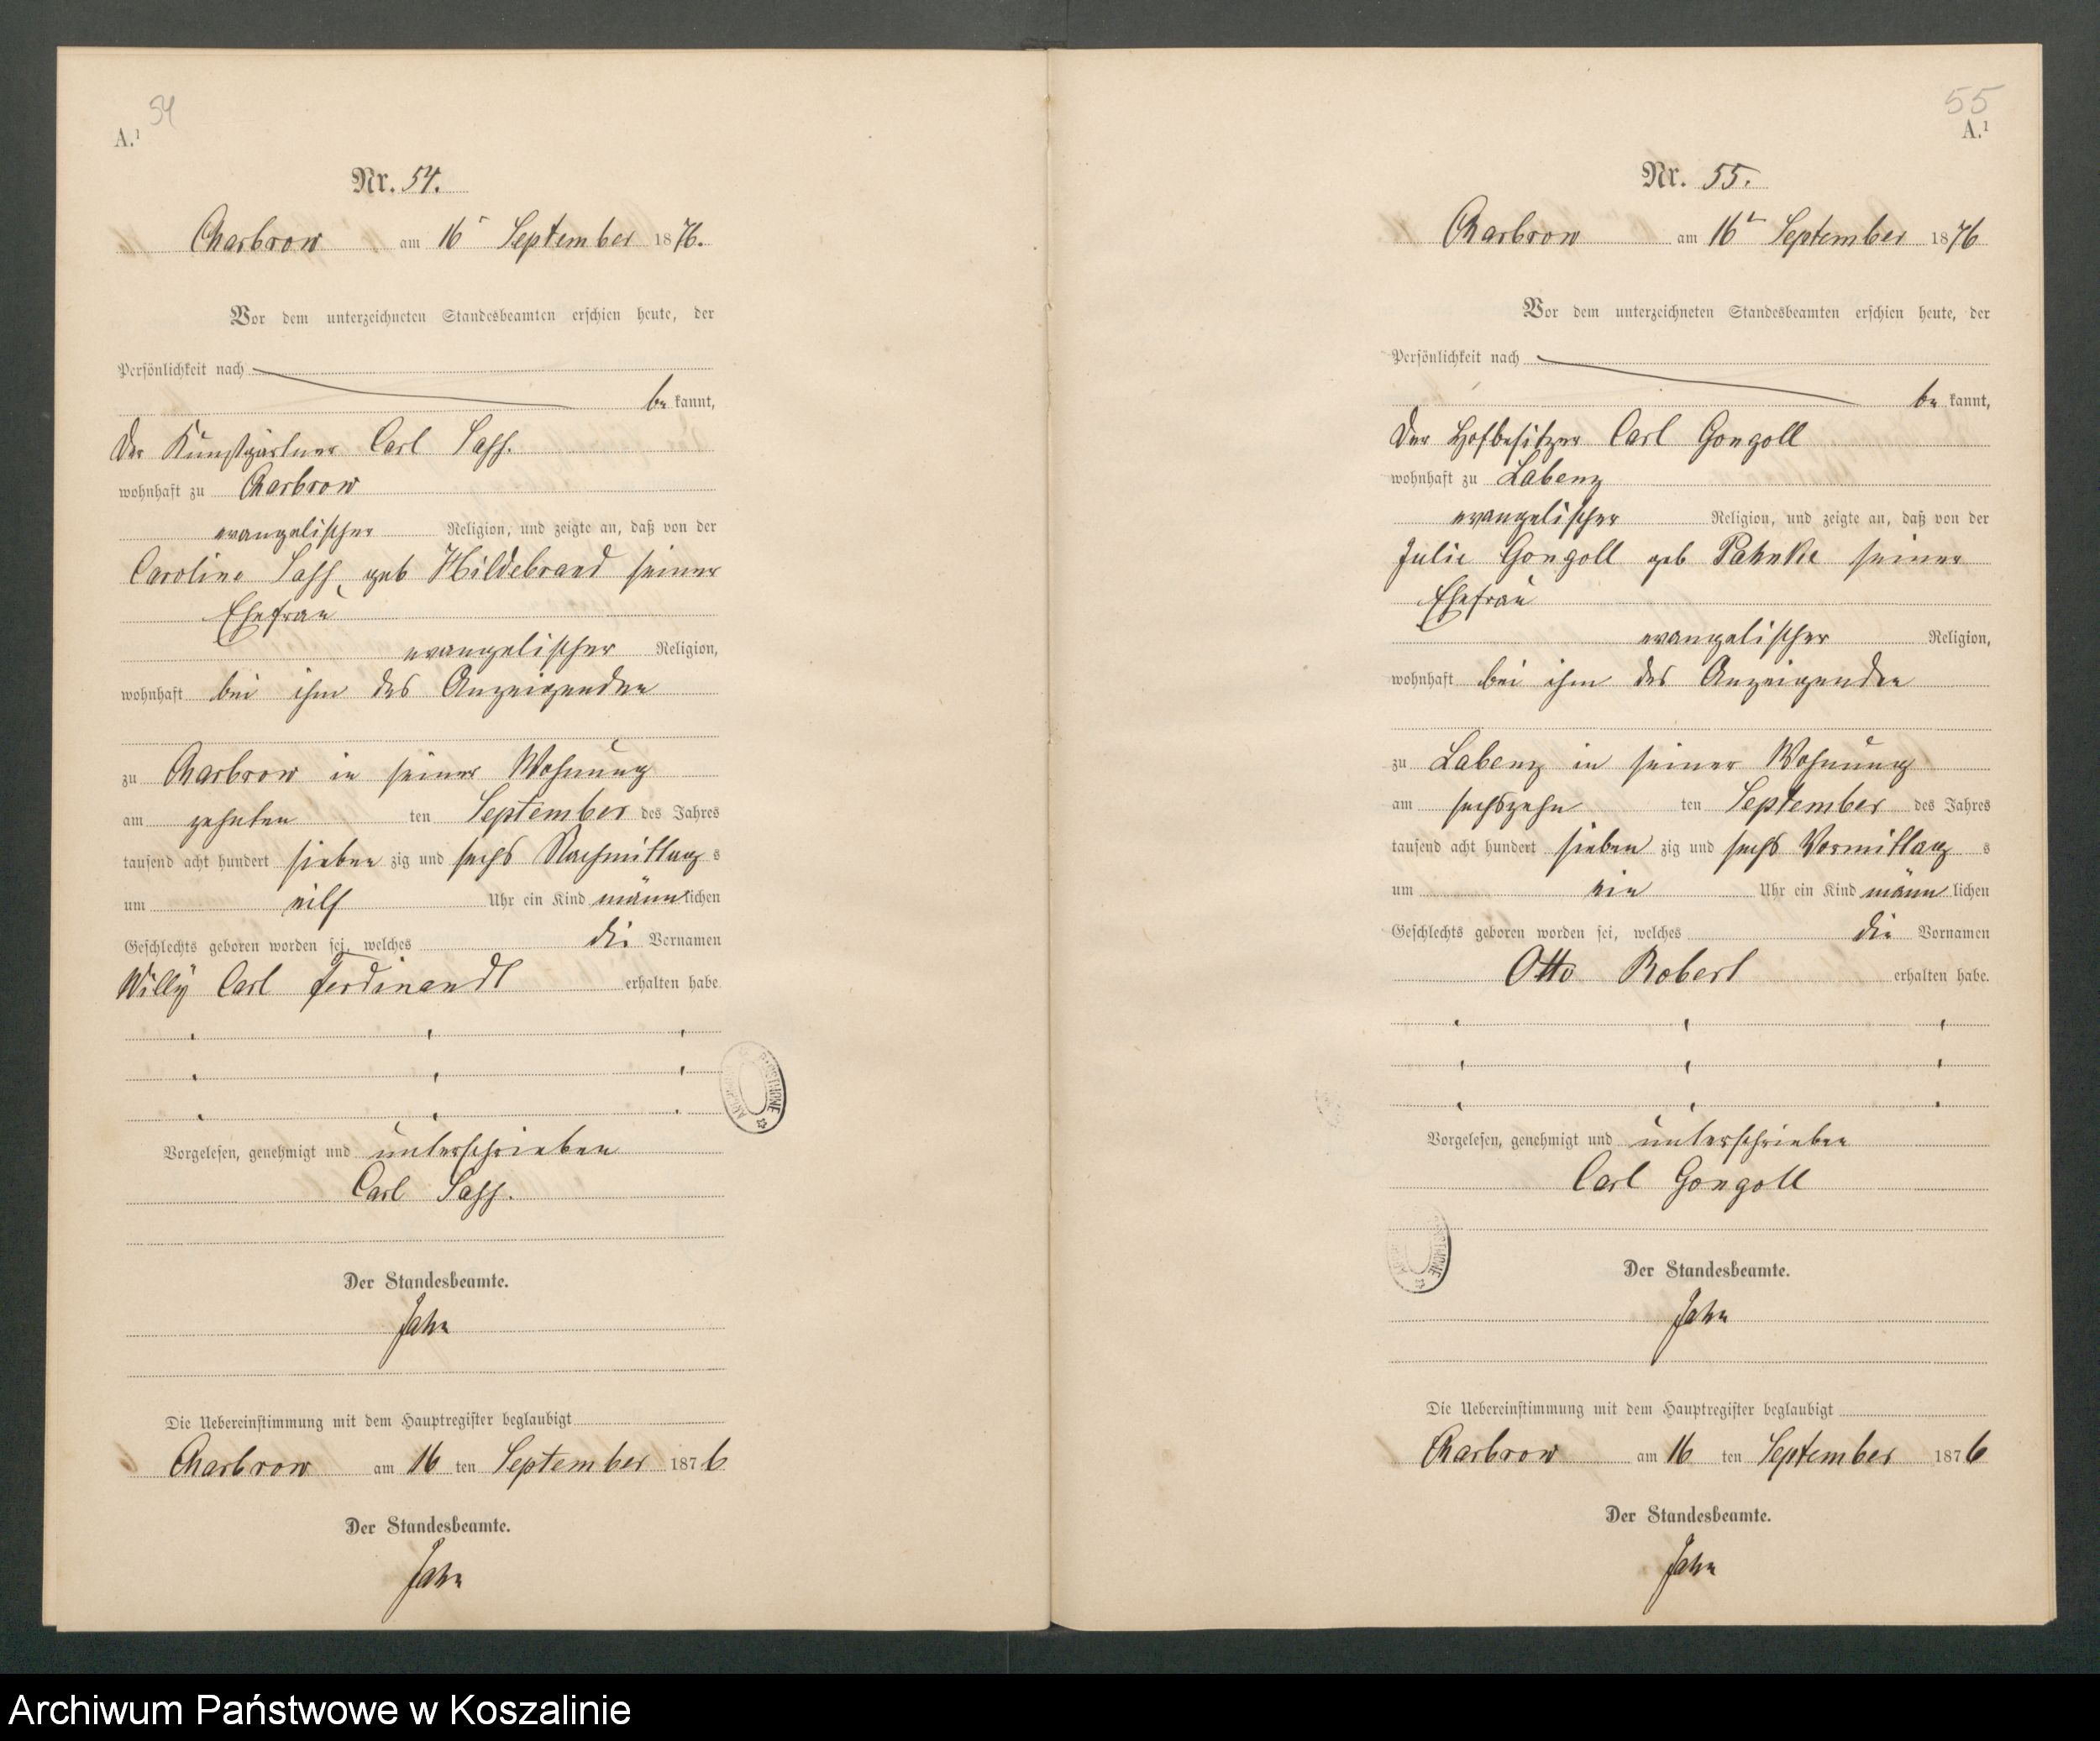 54
A.¹
Nr. 54.
Charbrow am 16 September 1876.
Vor dem unterzeichneten Standesbeamten erschien heute, der
Persönlichkeit nach
be kannt,
der Kunstgärtner Carl Sass.
wohnhaft zu Charbrow
evangelischer Religion, und zeigte an, daß von der
Caroline Sass, geb Hildebrand seiner
Ehefrau
evangelischer Religion,
wohnhaft bei ihm des Anzeigenden
zu Charbrow in seiner Wohnung
am zehnten ten September des Jahres
tausend acht hundert sieben zig und sechs Nachmittag s
um eilf Uhr ein Kind männ lichen
Geschlechts geboren worden sei, welches die Vornamen
Willy Carl Ferdinandt erhalten habe
Vorgelesen, genehmigt und unterschrieben
Carl Sass.
Der Standesbeamte.
Jahn
Die Uebereinstimmung mit dem Hauptregister beglaubigt
Charbrow am 16 ten September 1876
Der Standesbeamte.
Jahn
55
A.¹
Nr. 55.
Charbrow am 16t September 1876
Vor dem unterzeichneten Standesbeamten erschien heute, der
Persönlichkeit nach
be kannt,
der Hofbesitzer Carl Gongoll
wohnhaft zu Labenz
evangelischer Religion, und zeigte an, daß von der
Julie Gongoll geb Pahnke seiner
Ehefrau
evangelischer Religion,
wohnhaft bei ihm des Anzeigenden
zu Labenz in seiner Wohnung
am sechszehn ten September des Jahres
tausend acht hundert sieben zig und sechs Vormittag s
um ein Uhr ein Kind männ lichen
Geschlechts geboren worden sei, welches die Vornamen
Otto Robert erhalten habe.
Vorgelesen, genehmigt und unterschrieben
Carl Gongoll
Der Standesbeamte.
Jahn
Die Uebereinstimmung mit dem Hauptregister beglaubigt
Charbrow am 16 ten September 1876
Der Standesbeamte.
Jahn
Archiwum Państwowe w Koszalinie